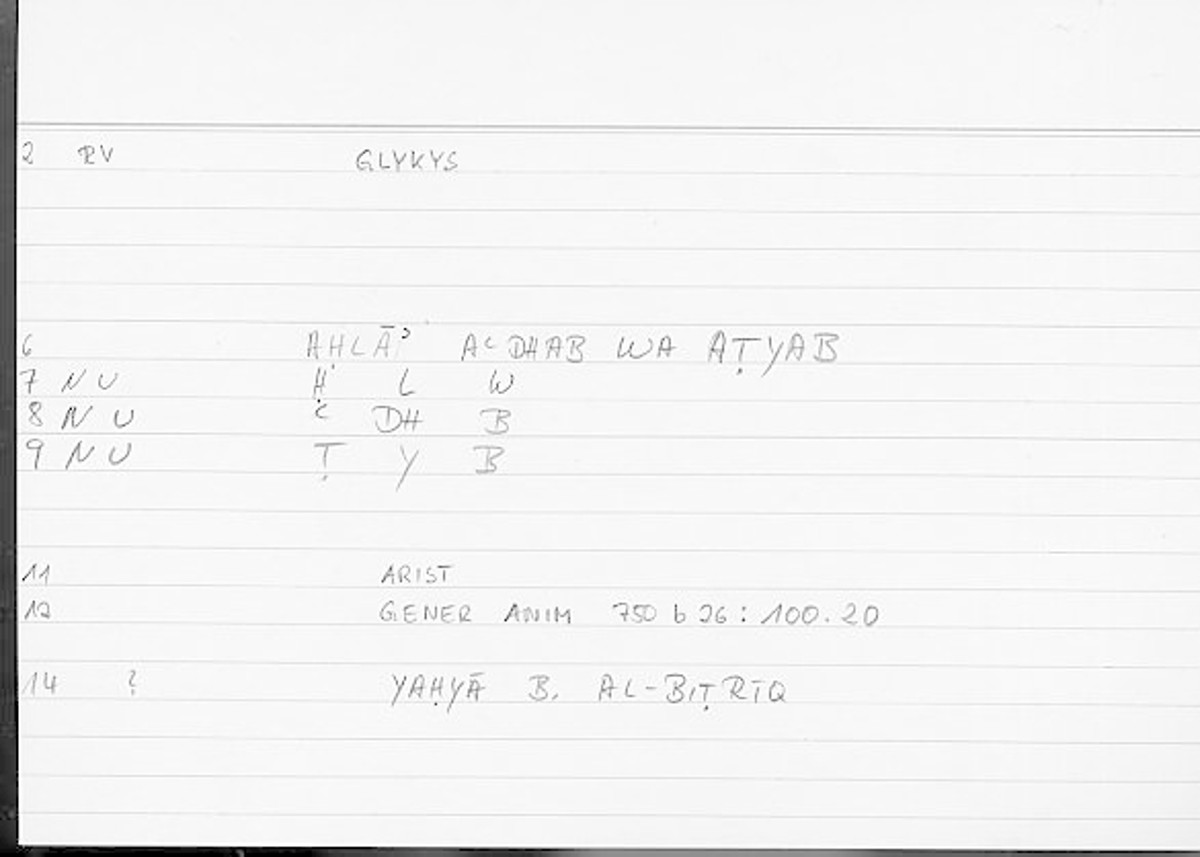 2 RV GLYKYS
6 AḤLĀʾ AʿDHAB WA AṬYAB
7 NU Ḥ L W
8 NU ʿ DH B
9 NU Ṭ Y B
11 ARIST
12 GENER ANIM 750 b 26 : 100.20
14 ? YAḤYĀ B. AL-BIṬRĪQ